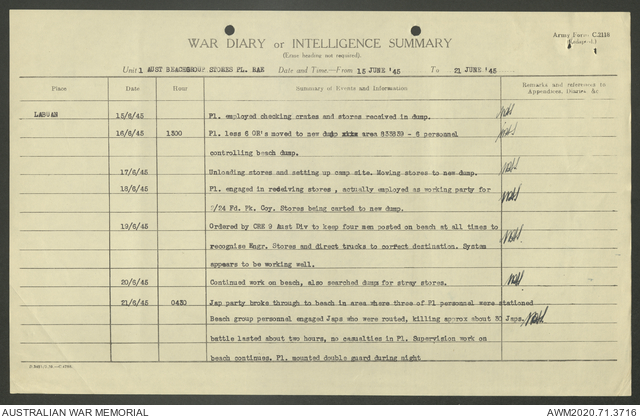 Army Form C.2118
WAR DIARY or INTELLIGENCE SUMMARY
(Erase heading not required).
Unit 1 AUST BEACHGROUP STORES PL. RAE Date and Time—From 15 JUNE '45 To 21 JUNE '45
Place Date Hour Summary of Events and Information Remarks and references to Appendices, Diaries &c
LABUAN 15/6/45 Pl. employed checking crates and stores received in dump.
16/6/45 1300 Pl. less 6 OR's moved to new dump area 835859 - 6 personnel
controlling beach dump.
17/6/45 Unloading stores and setting up camp site. Moving stores to new dump.
18/6/45 Pl. engaged in receiving stores, actually employed as working party for
2/24 Fd. Pk. Coy. Stores being carted to new dump.
19/6/45 Ordered by CRE 9 Aust Div to keep four men posted on beach at all times to
recognise Engr. Stores and direct trucks to correct destination. System
appears to be working well.
20/6/45 Continued work on beach, also searched dumps for stray stores.
21/6/45 0430 Jap party broke through to beach in area where three of Pl personnel were stationed
Beach group personnel engaged Japs who were routed, killing approx about 30 Japs.
battle lasted about two hours, no casualties in Pl. Supervision work on
beach continues. Pl. mounted double guard during night
AUSTRALIAN WAR MEMORIAL AWM2020.71.3716